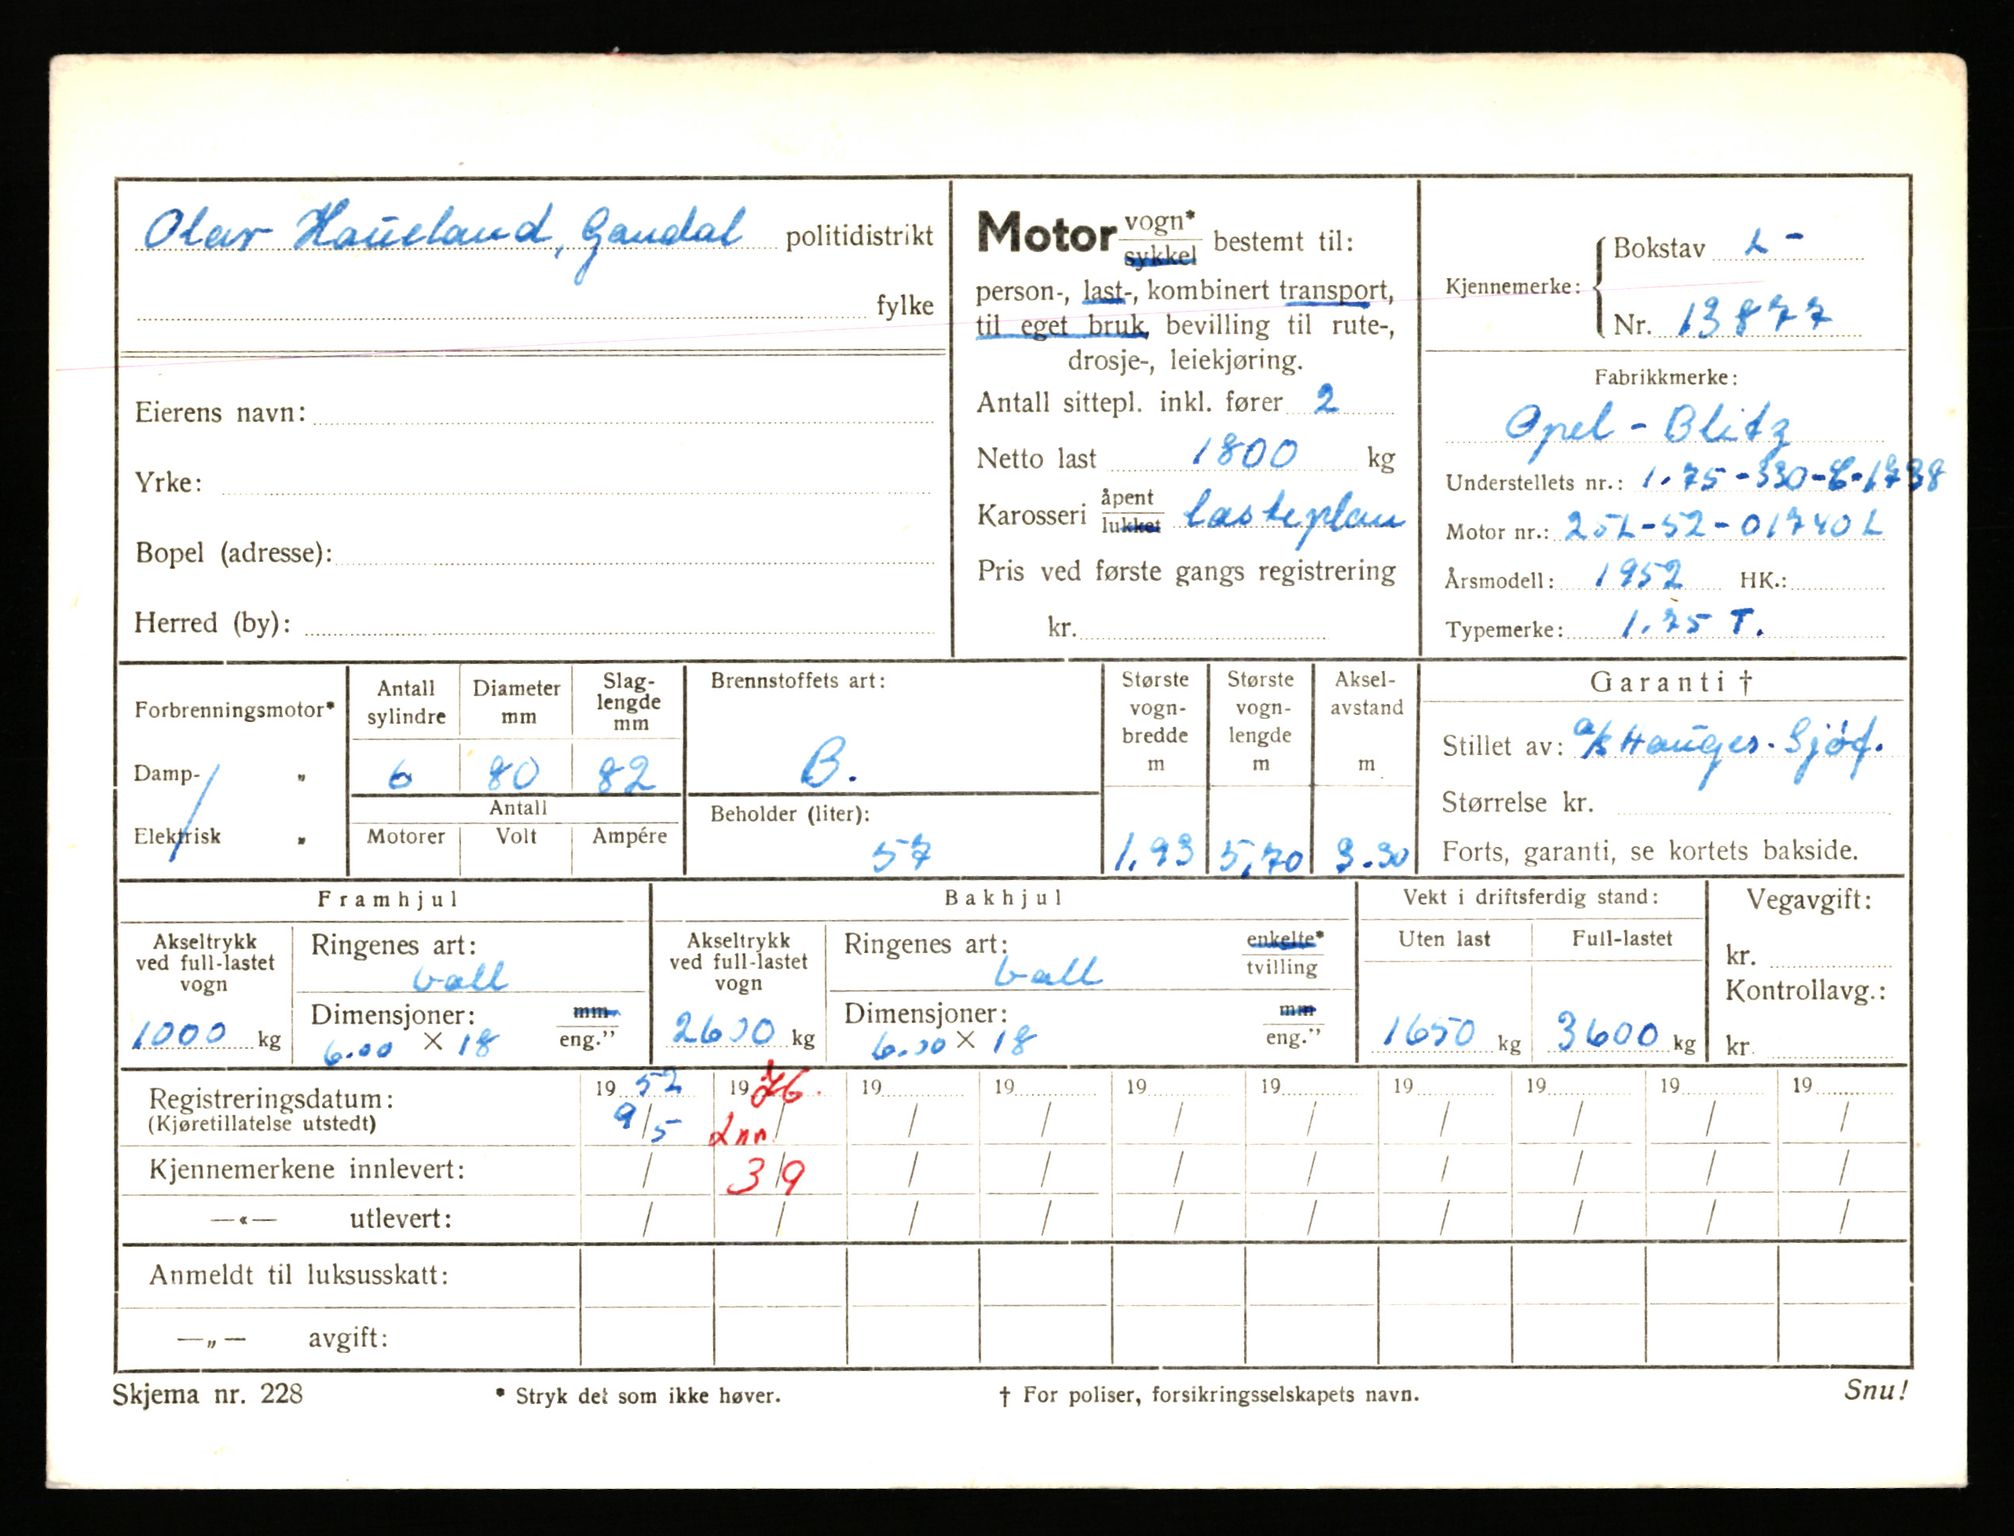 Olav Haueland, Gandal politidistrikt
fylke
Eierens navn:
Yrke:
Bopel (adresse):
Herred (by):
Motor vogn* sykkel bestemt til:
person-, last-, kombinert transport,
til eget bruk, bevilling til rute-,
drosje-, leiekjøring.
Antall sittepl. inkl. fører 2
Netto last 1800 kg
Karosseri åpent lukket lasteplan
Pris ved første gangs registrering
kr.
Kjennemerke: Bokstav L-
Nr. 13877
Fabrikkmerke:
Opel - Blitz
Understellets nr.: 1.75-330-6-1738
Motor nr.: 25L-52-01740L
Årsmodell: 1952 HK.:
Typemerke: 1.75 T.
Forbrenningsmotor*
Damp- "
Elektrisk "
Antall sylindre
Diameter mm
Slag-lengde mm
6 80 82
Antall
Motorer Volt Ampére
Brennstoffets art:
B.
Beholder (liter):
57
Største vogn-bredde m
1.93
Største vogn-lengde m
5,70
Aksel-avstand m
3.30
Garanti †
Stillet av: a/s Hauges. Sjøf.
Størrelse kr.
Forts, garanti, se kortets bakside.
Framhjul
Akseltrykk ved full-lastet vogn
1000 kg
Ringenes art:
ball
Dimensjoner: mm eng."
6.00 × 18
Bakhjul
Akseltrykk ved full-lastet vogn
2600 kg
Ringenes art: enkelte* tvilling
ball
Dimensjoner: mm eng."
6.00 × 18
Vekt i driftsferdig stand:
Uten last Full-lastet
1650 kg 3600 kg
Vegavgift:
kr.
Kontrollavg.:
kr.
19 52 19 76. 19 19 19 19 19 19 19 19
Registreringsdatum:
(Kjøretillatelse utstedt)
9/5 Inn / / / / / / / / /
Kjennemerkene innlevert: / 3/9 / / / / / / / /
—«— utlevert: / / / / / / / / / /
Anmeldt til luksusskatt:
—„— avgift:
Skjema nr. 228 * Stryk det som ikke høver. † For poliser, forsikringsselskapets navn. Snu!